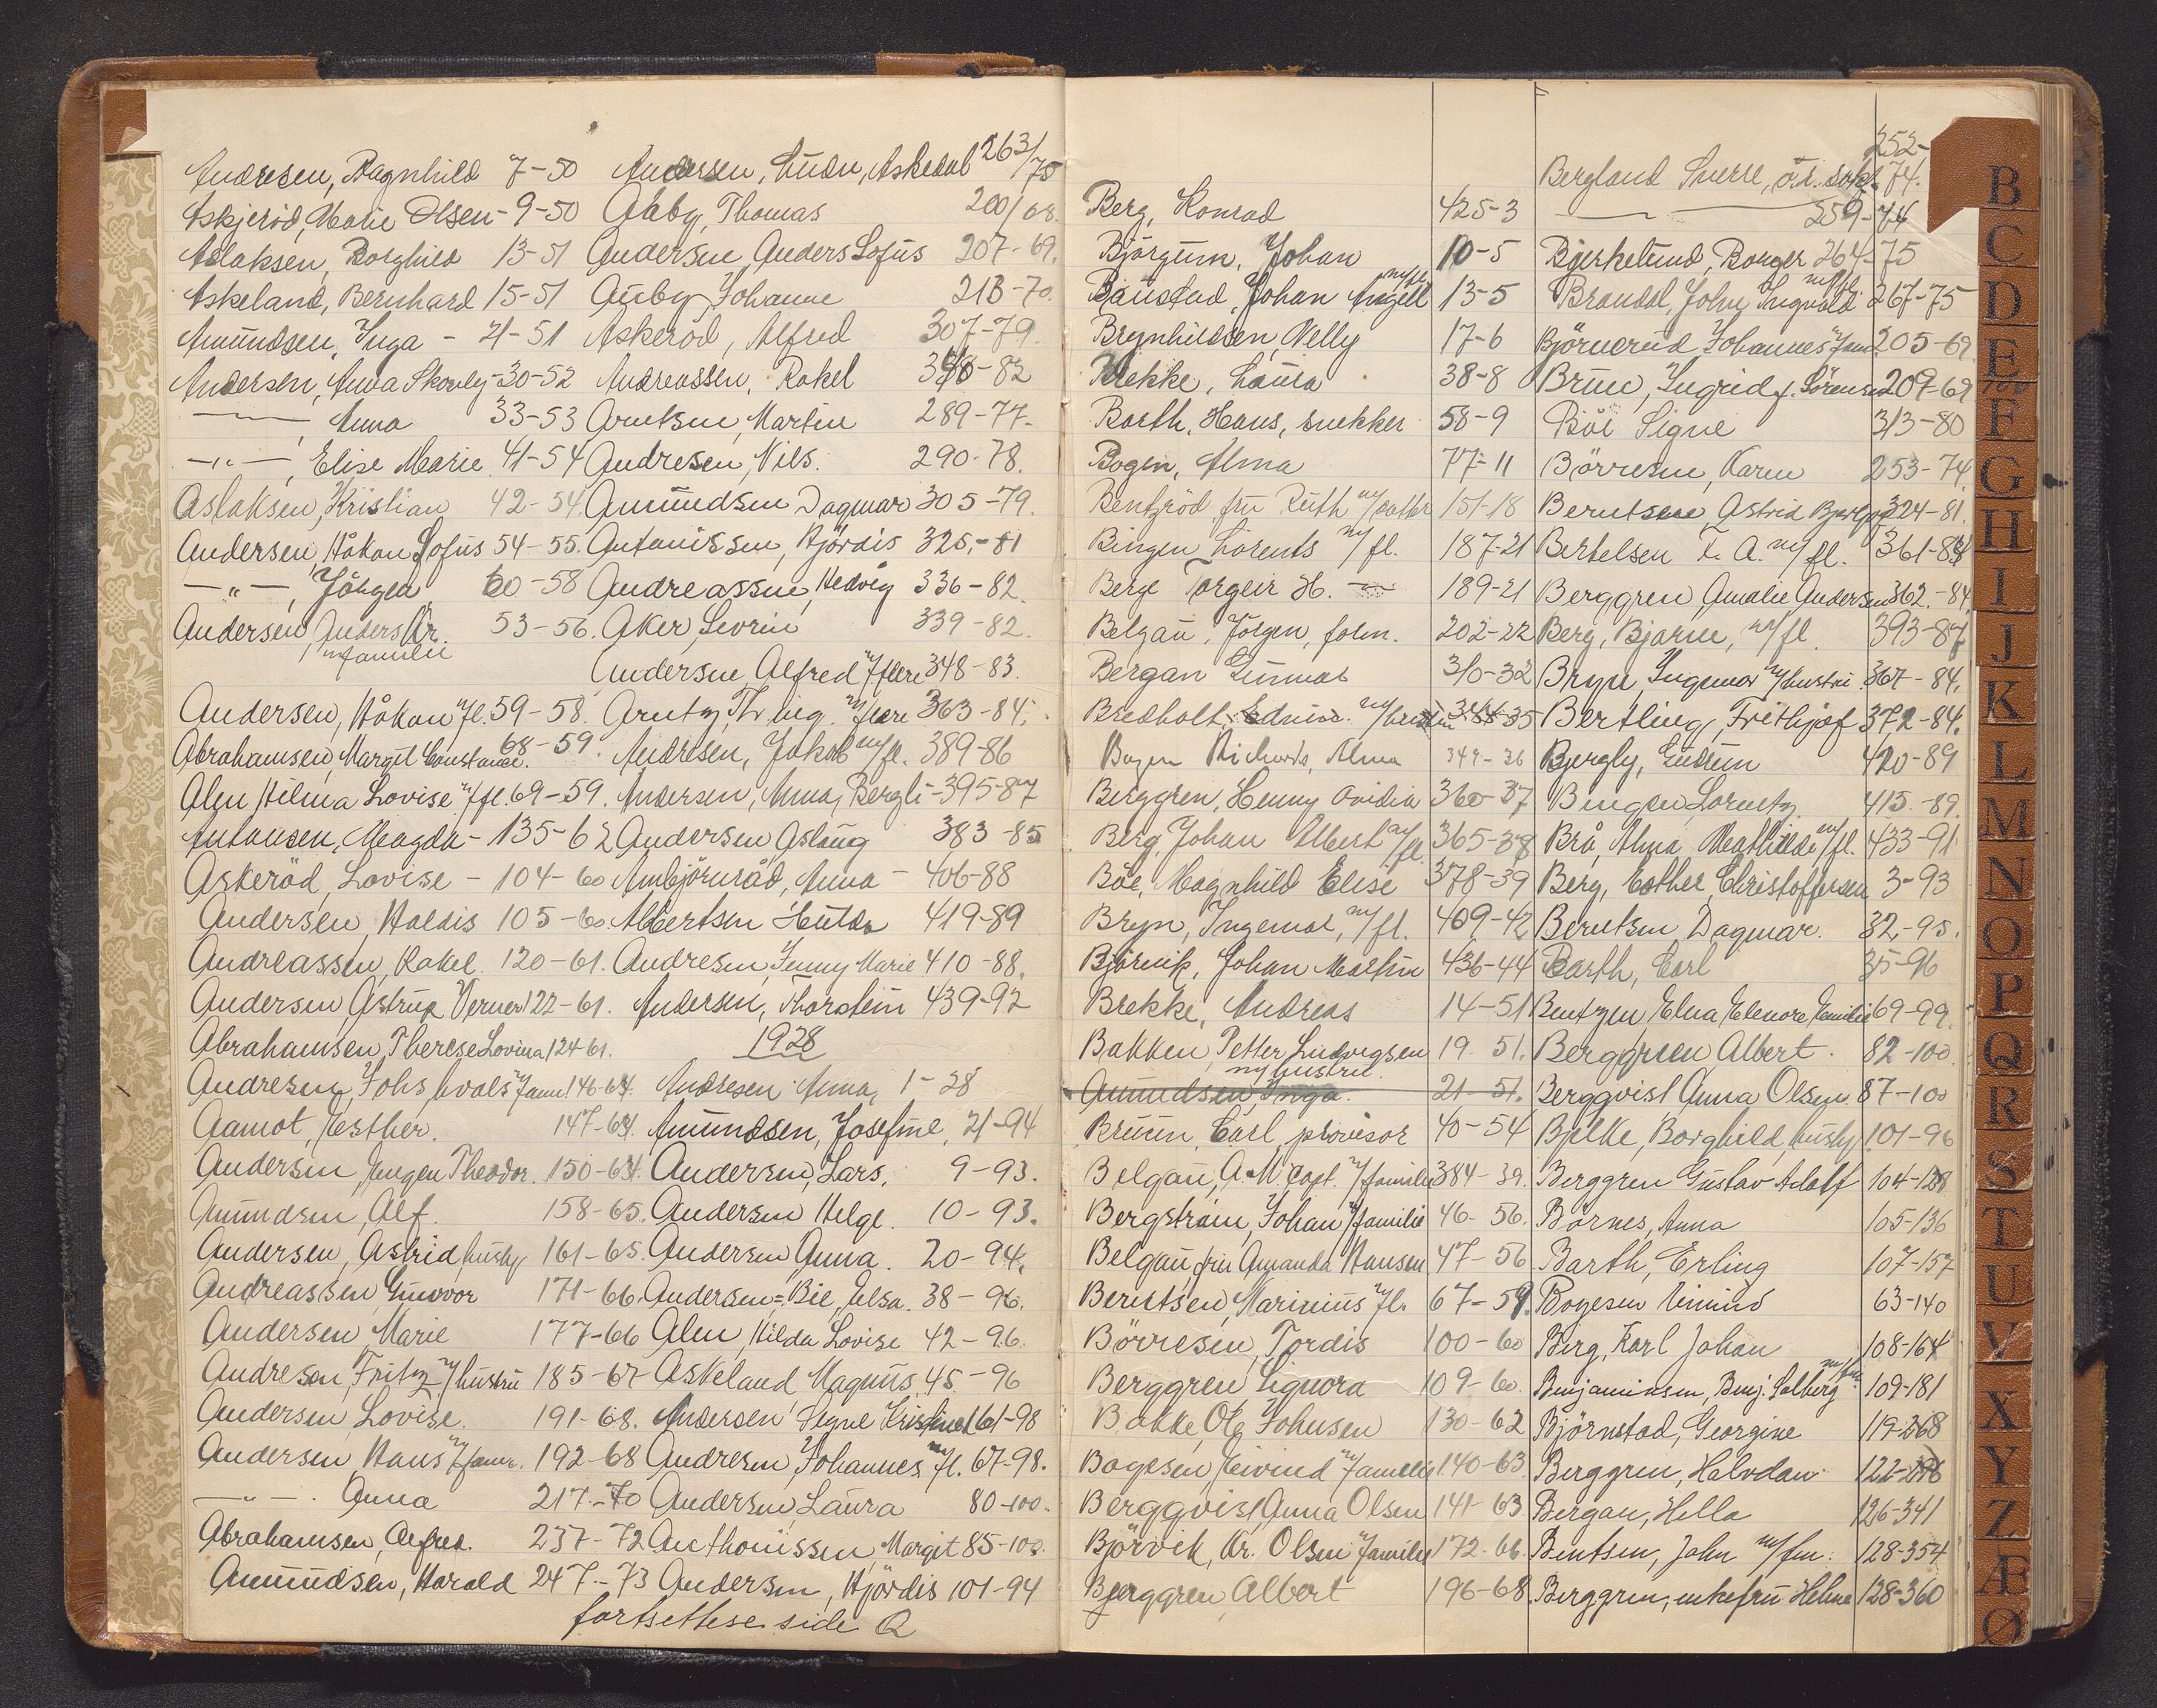 Andresen, Ragnhild 7-50
Askjeröd, Marie Olsen - 9-50
Aslaksen, Borghild 13-51
Askeland, Bernhard 15-51
Amundsen, Inga - 21-51
Andersen, Anna Skovly - 30-52
— , Anna 33-53
—"—, Elise Marie 41-54
Aslaksen, Kristian 42-54
Andersen, Håkon Sofus 54-55.
—"—, Jörgen 60-58
Andersen, Anders Kr. 53-56.
m/familie
Andersen, Håkon m/fl. 59-58.
Abrahamsen, Margit Constance. 68-59.
Alm Hilma Lovise m/fl. 69-59.
Antonsen, Magda - 135-62
Askeröd, Lovise - 104-60
Andersen, Haldis 105-60.
Andreassen, Rakel. 120-61.
Andersen, Astrup Verner 122-61.
Abrahamsen, Therese Lovina 124-61.
Andresen, Johs. m/fam. 146-64.
Aamot, Esther. 147-64.
Andersen, Jengen Theodor. 150-64.
Amundsen, Alf. 158-65.
Andersen, Astrid, hushj. 161-65.
Andreassen Gunvor 171-66.
Andersen Marie 177-66
Andresen, Fritz m/hustru 185-67
Andersen Lovise. 191-68.
Andersen Hans m/fam. 192-68
—"—. Anna 217-70
Abrahamsen, Alfred. 237-72
Amundsen, Harald 247-73
Andersen, Gudr., Askedal 263/75
Aaby, Thomas 200/68.
Andersen Anders Sofus 207-69.
Auby, Johanne 213-70.
Askeröd, Alfred 307-79.
Andreassen, Rakel 340-82
Arntsen, Martin 289-77.
Andresen, Nils. 290-78.
Amundsen Dagmar 305-79.
Antonissen, Hjördis 325-81
Andreassen, Hedvig 336-82.
Aker, Severin 339-82.
Andersen Alfred m/flere 348-83.
Arntz, Th. ing. m/flere 363-84.
Andresen, Jakob m/fl. 389-86
Andersen, Anna, Bergli - 395-87
Andersen Aslaug 383-85
Ambjörnröd, Anna - 406-88
Albertsen Hulda 419-89
Andresen, Jenny Marie 410-88.
Andersen, Thorstein 439-92
1928
Andresen Anna, 1-28
Amundsen, Josefine, 21-94
Andersen, Lars. 9-93.
Andersen Helge. 10-93.
Andersen Anna. 20-94.
Andersen=Bie, Elsa. 38-96.
Alm, Hilda Lovise 42-96.
Askeland Magnus. 45.-96
Andersen Signe Kristine 61-98
Andresen, Johannes m/fl. 67-98.
Andersen Laura 80-100.
Anthonissen, Margit 85-100.
Andersen, Hjördis 101-94
fortsettese side Q
Berg, Konrad 425-3
Björgum, Johan 10-5
Baustad, Johan Angell m/fl. 13-5
Brynhildsen, Nelly 17-6
Brekke, Laura 38-8
Barth, Hans, snekker 58-9
Bogen, Alma 77-11
Bentzröd, fru Ruth m/datter 151-18
Bingen Lorents m/fl. 187-21
Berge Torgeir H. 189-21
Belgau, Jörgen, 202-22
Bergan Gunnar 310-32
Bredholt, Edvin. m/hustru 344-35
Bogen Richards, Alma 349-36
Berggren, Henny Ovidia 360-37
Berg, Johan Albert m/fl. 365-38
Böe, Magnhild Elise 378-39
Bryn, Ingemar, m/fl. 409-42
Björnvik, Johan Martin 436-44
Brekke, Andreas 14-51
Bakken, Petter Ludvigsen 19. 51.
m/hustru
Amundsen, Inga. 21-51.
Bruun, Carl, provisor 40-54
Belgau, A. M. capt. m/familie 384-39.
Bergström, Johan m/familie 46-56.
Belgau, fru Amanda Hansen 47-56
Berntsen, Marinius m/fl. 67-59.
Börresen, Tordis 100-60
Berggren Signora 109-60.
Bakke, Ole Johnsen 130-62
Bogesen Eivind m/familie 140-63
Bergqvist Anna Olsen 141-63
Björvik, Kr. Olsen m/familie 172-66.
Berggren Albert 196-68.
252-
Bergland Sverre, 74.
— 259-74
Bjerkelund, Borger 264-75
Brandal, John Ingvald m/fl. 267-75
Björnerud Johannes m/fam. 205-69
Bruu, Ingrid f. Sörensen 209-69
Böe Signe 313-80
Börresen, Karen 253-74.
Berntsen Astrid 324-81.
Bertelsen F. A. m/fl. 361-84
Berggren Amalie Andersen 362.-84.
Berg, Bjarne, m/fl. 393-87
Bryn, Ingemar m/hustru 367-84.
Bertling, Frithjof 372-84.
Bergly, Gudrun 420-89
Bingen, Lorentz 415-89.
Brå, Alma Mathilde m/fl. 433-91
Berg, Esther, Christoffersen 3-93
Berntsen Dagmar. 32-95.
Barth, Carl 35-96
Bentzen Elna Elenore Emilie 69-99.
Berggreen Albert. 82-100
Bergqvist Anna Olsen. 87-100
Bjelke, Borghild, hushj. 101-96
Berggren Gustav Adolf 104-128
Börnes, Anna 105-136
Barth, Erling 107-157
Bogesen Eivind 63-140
Berg, Karl Johan 108-164
Benjaminsen, Benj. Solberg m/fm. 109-181
Björnstad, Georgine 119-268
Berggren, Halvdan 122-296
Bergan, Hella 126-341
Bentsen, John m/fm. 128-354
Berggren, enkefru Helene 128-360
B
C
D
E
F
G
H
I
J
K
L
M
N
O
P
Q
R
S
T
U
V
X
Y
Z
Æ
Ø